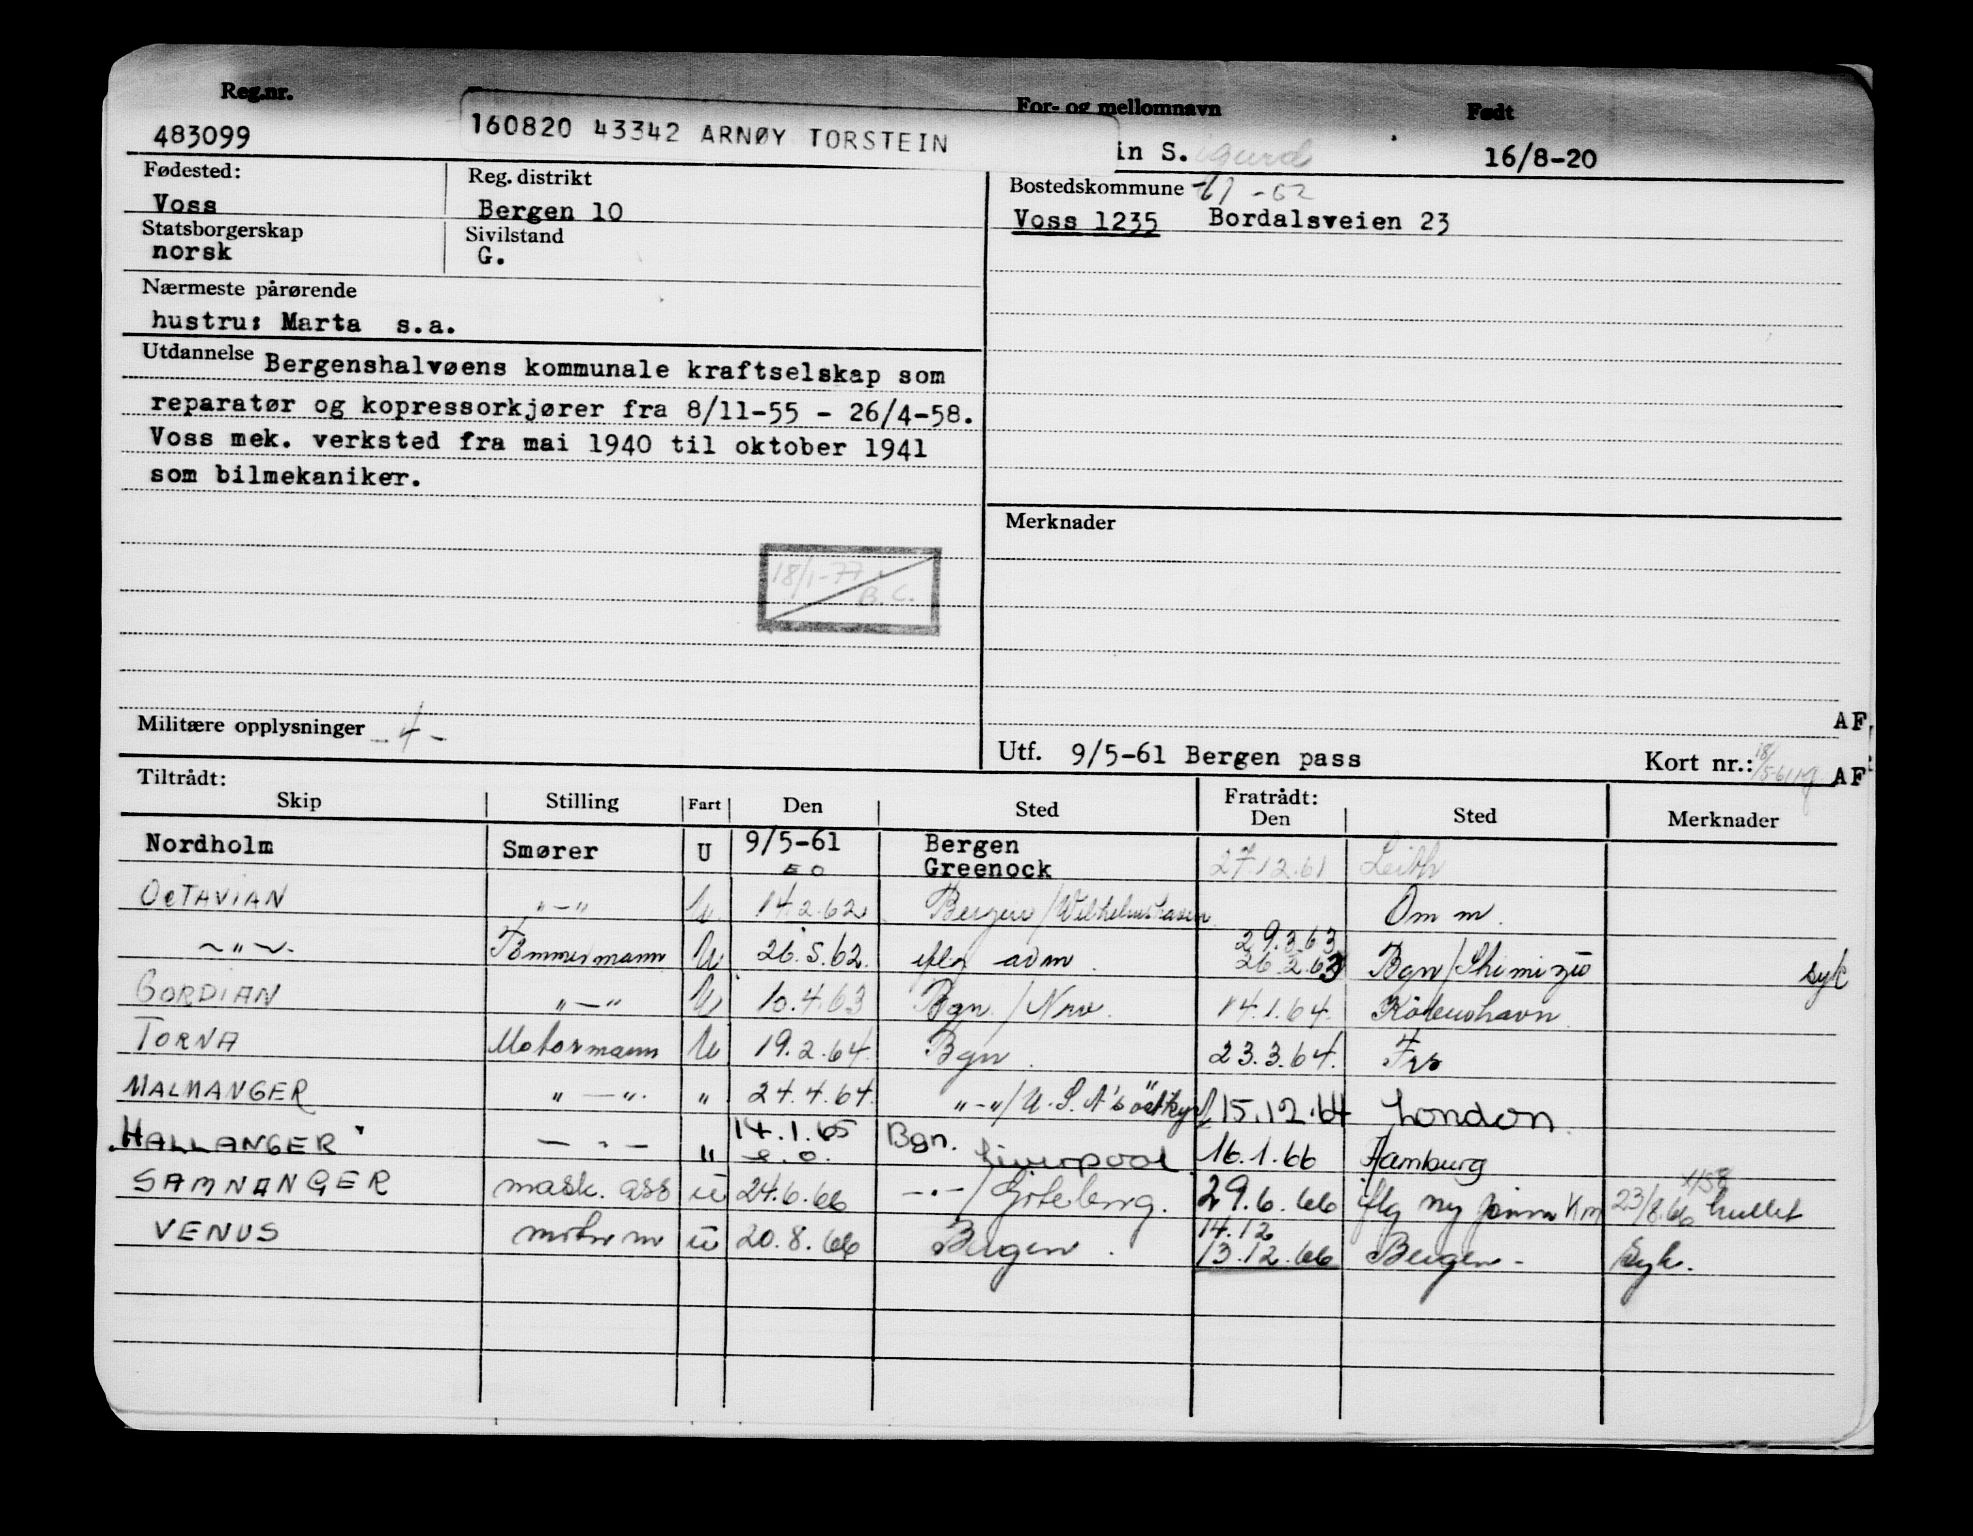 Reg.nr. For- og mellomnavn Født
483099 160820 43342 ARNØY TORSTEIN in S. 16/8-20
Fødested: Reg. distrikt Bostedskommune -61 -62
Voss Bergen 10 Voss 1235 Bordalsveien 23
Statsborgerskap Sivilstand
norsk G.
Nærmeste pårørende
hustru: Marta s.a.
Utdannelse Bergenshalvøens kommunale kraftselskap som
reparatør og kopressorkjører fra 8/11-55 - 26/4-58.
Voss mek. verksted fra mai 1940 til oktober 1941
som bilmekaniker.
Merknader
18/1-77
B.C.
Militære opplysninger
AF
Utf. 9/5-61 Bergen pass Kort nr.: AF
Tiltrådt: Fratrådt:
Skip Stilling Fart Den Sted Den Sted Merknader
Nordholm Smører U 9/5-61 Bergen
EO Greenock 27.12.61 Leith
OCTAVIAN "-" U 14.2.62 Bergen/Wilhelmshaven Om m.
~"~ Tømmermann U 26.5.62 iflg adm. 29.3.63
26.2.63 Bgn/Shimizu syk
GORDIAN "-" U 10.4.63 Bgn/Nrv. 14.1.64. København
TORNA Motormann U 19.2.64. Bgn. 23.3.64.
MALMANGER "-". " 24.4.64. "-"/U.S.A's østkyst 15.12.64 London.
"HALLANGER" - " - " 14.1.65 Bgn.
e.o. Liverpool. 16.1.66 Hamburg
SAMNANGER mask. ass u 24.6.66 -"-/Göteborg. 29.6.66 iflg ny 23/8.66 hullet
VENUS motorm u 20.8.66 Bergen. 14.12
13.12.66 Bergen- Syk.